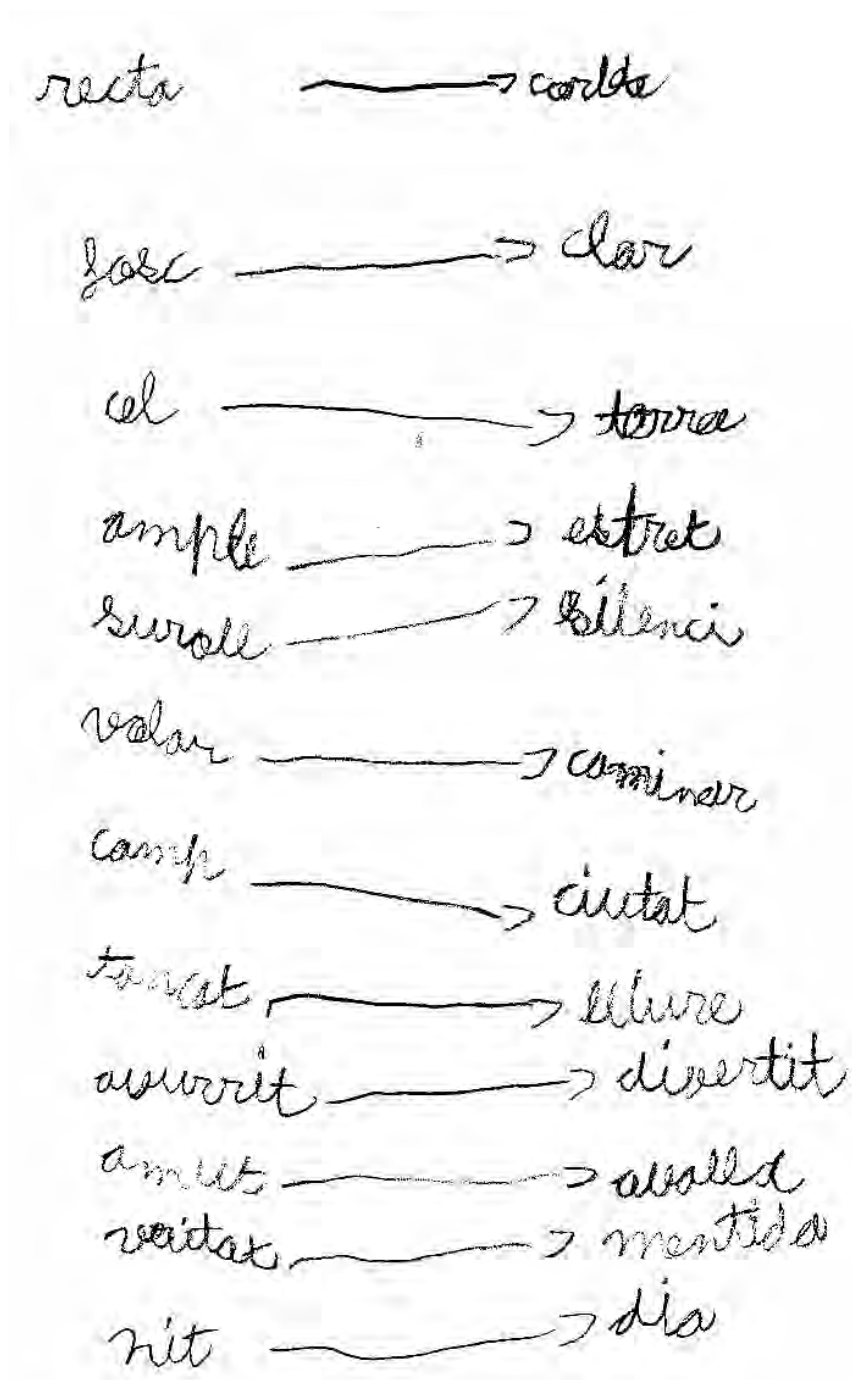 recta → corba
fosc → clar
cel → terra
ample → estret
suroll → silenci
volar → caminar
camp → ciutat
tancat → lliure
avurrit → divertit
→ avall
veritat → mentida
nit → dia